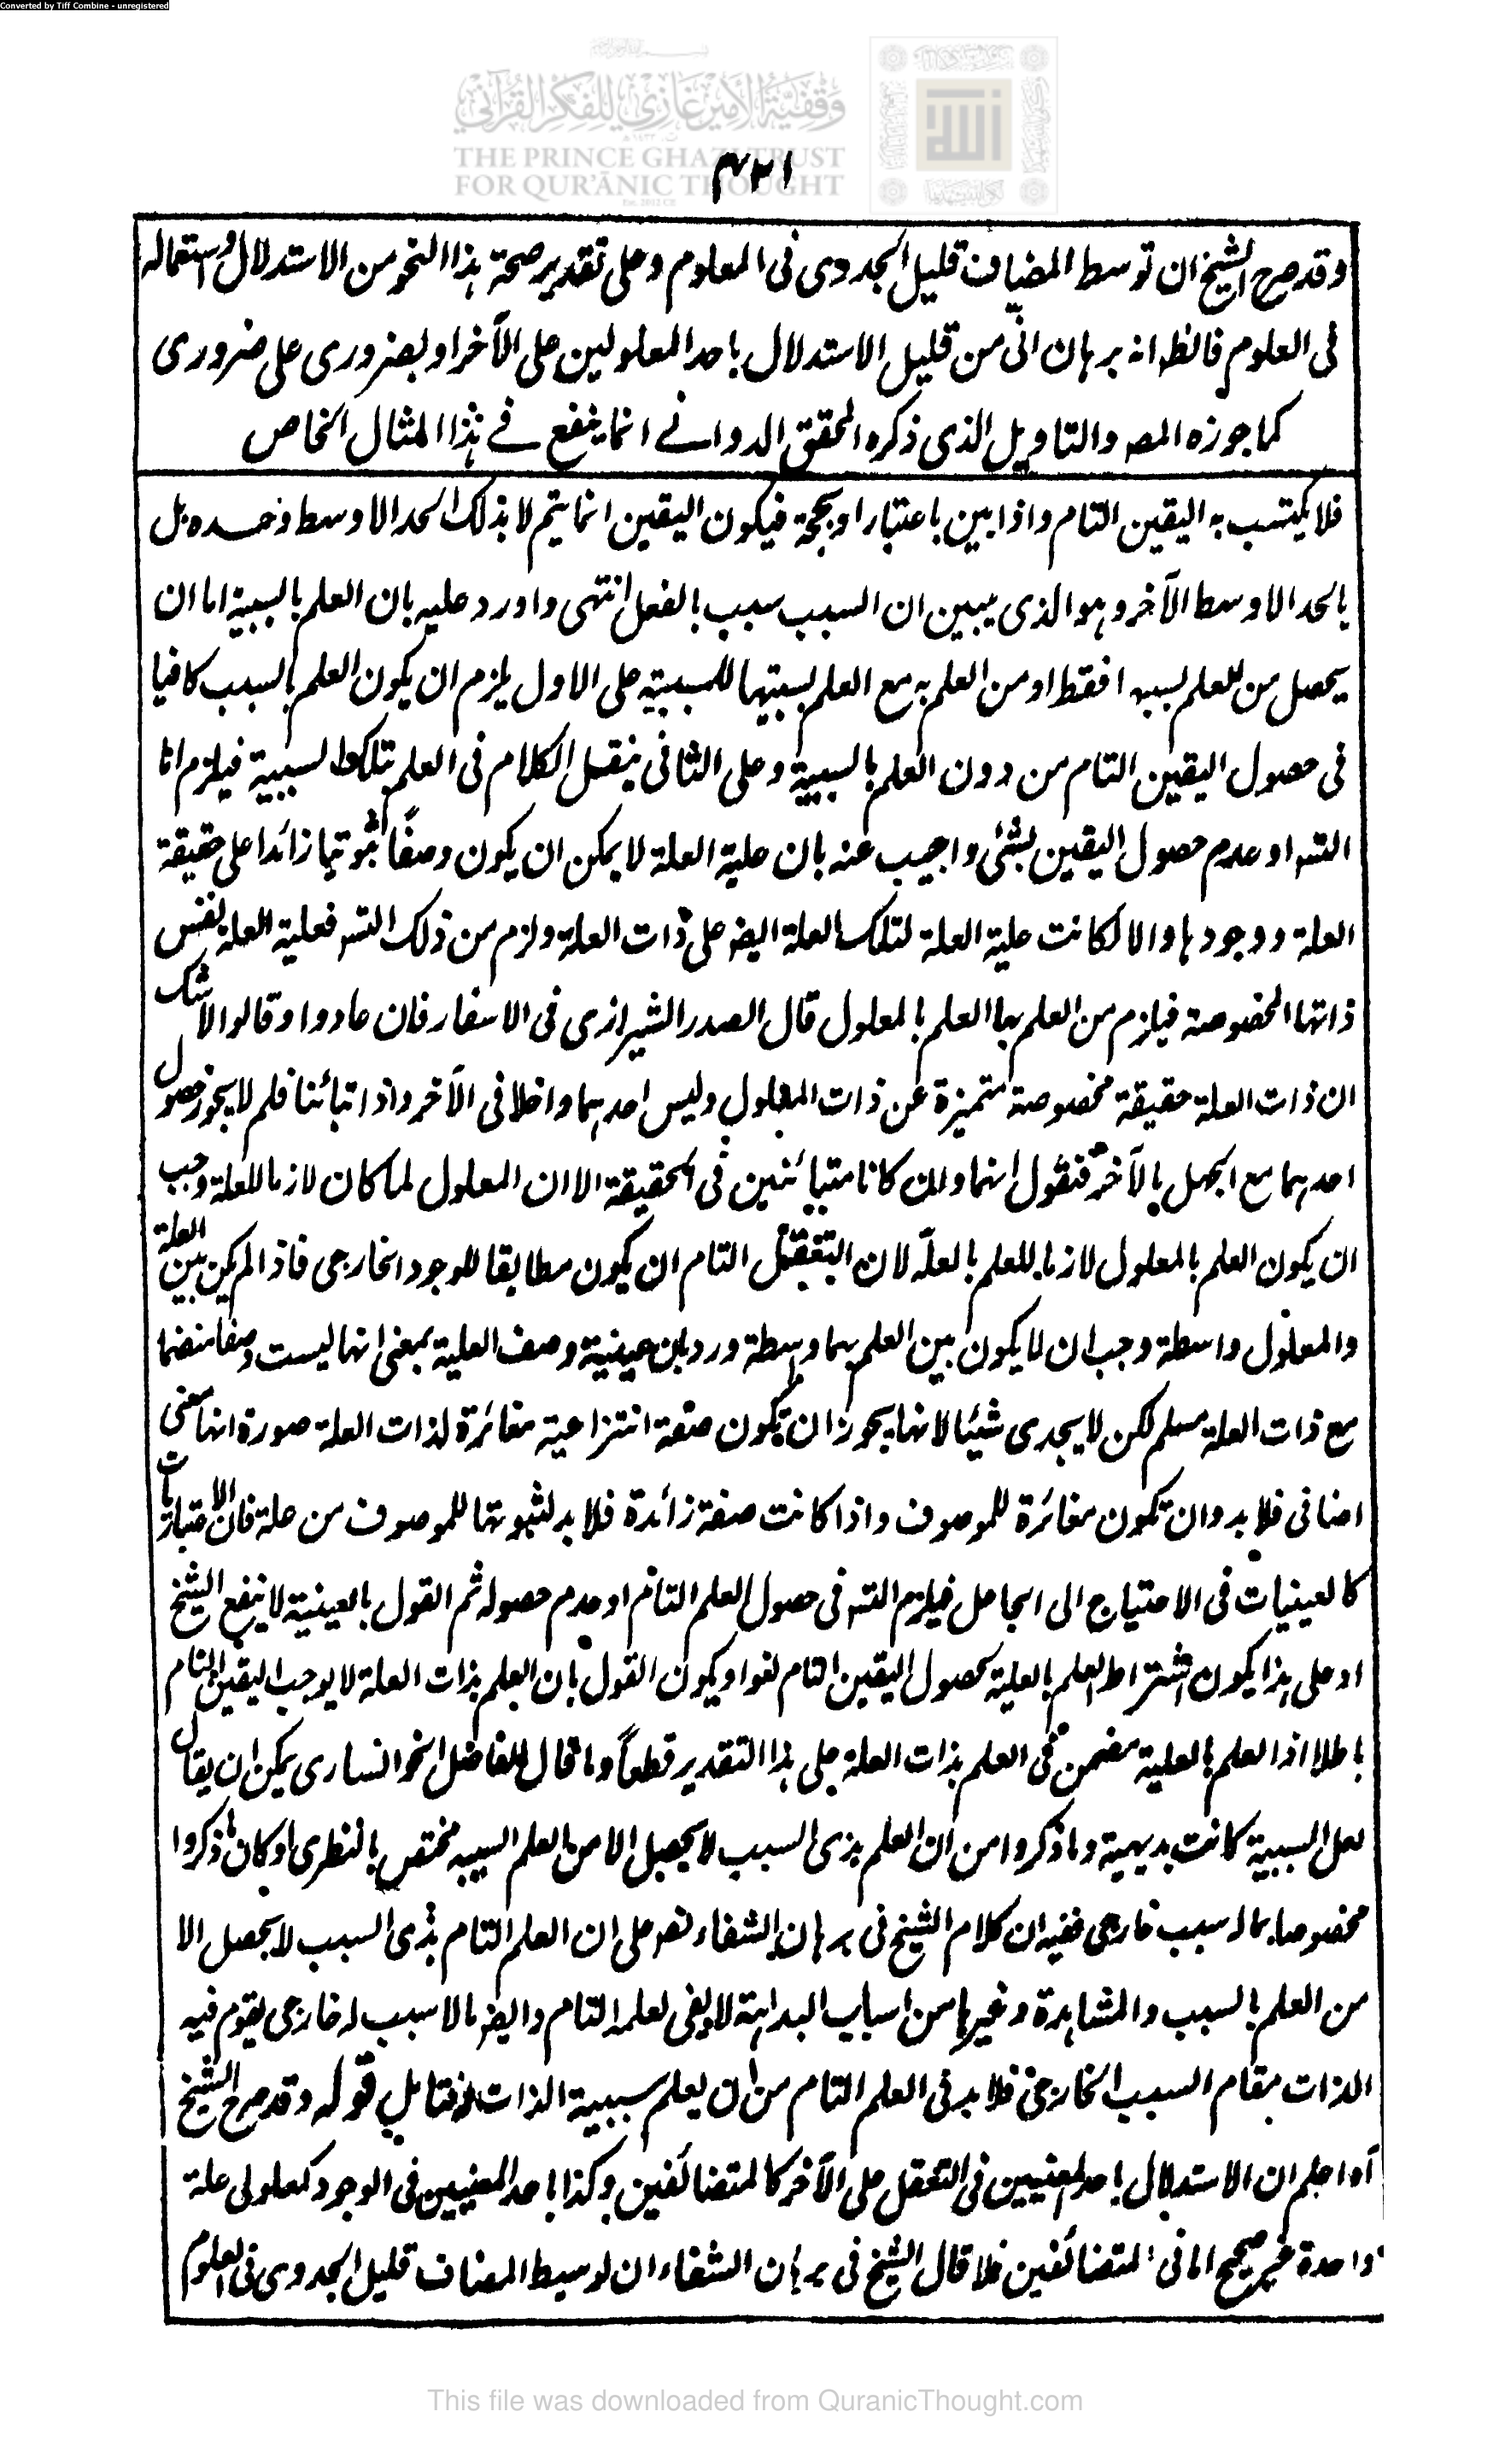 Converted by Tiff Combine - unregistered
وقفية الأمير غازي للفكر القرآني
THE PRINCE GHAZI TRUST
FOR QUR'ĀNIC THOUGHT
٣٢١
وقد صرح الشيخ ان توسط المضاف قليل الجدوى فى المعلوم وعلى تقدير صحة هذا النحو من الاستدلال واستعماله
فى العلوم فالظ انه برهان انّى من قبيل الاستدلال باحد المعلولين على الآخر او بضرورى على ضرورى
كما جوزه المصـ والتاويل الذى ذكره المحقق الدوانے انما ينفع فے هذا المثال الخاص
فلا يكتسب به اليقين التام واذا بين باعتبار او بحجة فيكون اليقين انما يتم لا بذلك الحد الاوسط وحده بل
بالحد الاوسط الآخر وهو الذى يبين ان السبب سبب بالفعل انتهى واورد عليه بان العلم بالسببية اما ان
يحصل من العلم بسببه فقط او من العلم به مع العلم بسببيتها للسببية على الاول يلزم ان يكون العلم بالسبب كافيا
فى حصول اليقين التام من دون العلم بالسببية وعلى الثانى ينقل الكلام فى العلم بتلك السببية فيلزم اما
التسـ او عدم حصول اليقين بشئ واجيب عنه بان علية العلة لا يمكن ان يكون وصفًا ثبوتيا زائدا على حقيقة
العلة ووجودها والا لكانت علية العلة لتلك العلة ايضـ على ذات العلة ولزم من ذلك التسـ فعلية العلة نفس
ذاتها المخصوصة فيلزم من العلم بها العلم بالمعلول قال الصدر الشيرازى فى الاسفار فان عادوا وقالوا لا شك
ان ذات العلة حقيقة مخصوصة متميزة عن ذات المعلول وليس احدهما داخلا فى الآخر واذا تبائنا فلم لا يجوز حصول
احدهما مع الجهل بالآخر فنقول انهما وان كانا متبائنين فى الحقيقة الا ان المعلول لما كان لازما للعلة وجب
ان يكون العلم بالمعلول لازما للعلم بالعلّة لان التعقل التام ان يكون مطابقا للوجود الخارجى فاذا لم يكن بين العلة
والمعلول واسطة وجب ان لا يكون بين العلم بهما واسطة ورد بان عينية وصف العلية بمعنى انها ليست وصفا منضما
مع ذات العلة مسلم لكن لا يجدى شيئا لانها يجوز ان تكون صفة انتزاعية مغائرة لذات العلة ضرورة انها معنى
اضافى فلا بد وان تكون مغائرة للموصوف واذا كانت صفة زائدة فلا بد لثبوتها للموصوف من علة فان الاعتباريات
كالعينيات فى الاحتياج الى الجاعل فيلزم التسـ فى حصول العلم التام او عدم حصوله ثم القول بالعينية لا ينفع الشيخ
اذ على هذا يكون اشتراط العلم بالعلية لحصول اليقين التام لغوا ويكون القول بان العلم بذات العلة لا يوجب اليقين التام
باطلا اذ العلم بالعلية مضمن فى العلم بذات العلة على هذا التقدير قطعاً وما قال الفاضل الخوانسارى يمكن ان يقال
لعل السببية كانت بديهية وما ذكروا من ان العلم بذى السبب لا يحصل الا من العلم بسببه مختص بالنظرى او كان ما ذكروا
مخصوصا بما له سبب خارجى ففيه ان كلام الشيخ فى برهان الشفاء نص على ان العلم التام بذى السبب لا يحصل الا
من العلم بالسبب والمشاهدة وغيرها من اسباب البداهة لا يفى لعلم التام وايضـ ما لا سبب له خارجى يقوم فيه
الذات مقام السبب الخارجى فلا بد فى العلم التام من ان يعلم سببية الذات له فتامل قوله وقد صرح الشيخ
آه اعلم ان الاستدلال باحد المعنيين فى التعقل على الآخر كالمتضائفين وكذا باحد المعنيين فى الوجود كمعلولى علة
واحدة غير صحيح اما فى المتضائفين فلما قال الشيخ فى برهان الشفاء ان توسيط المضاف قليل الجدوى فى العلوم
This file was downloaded from QuranicThought.com